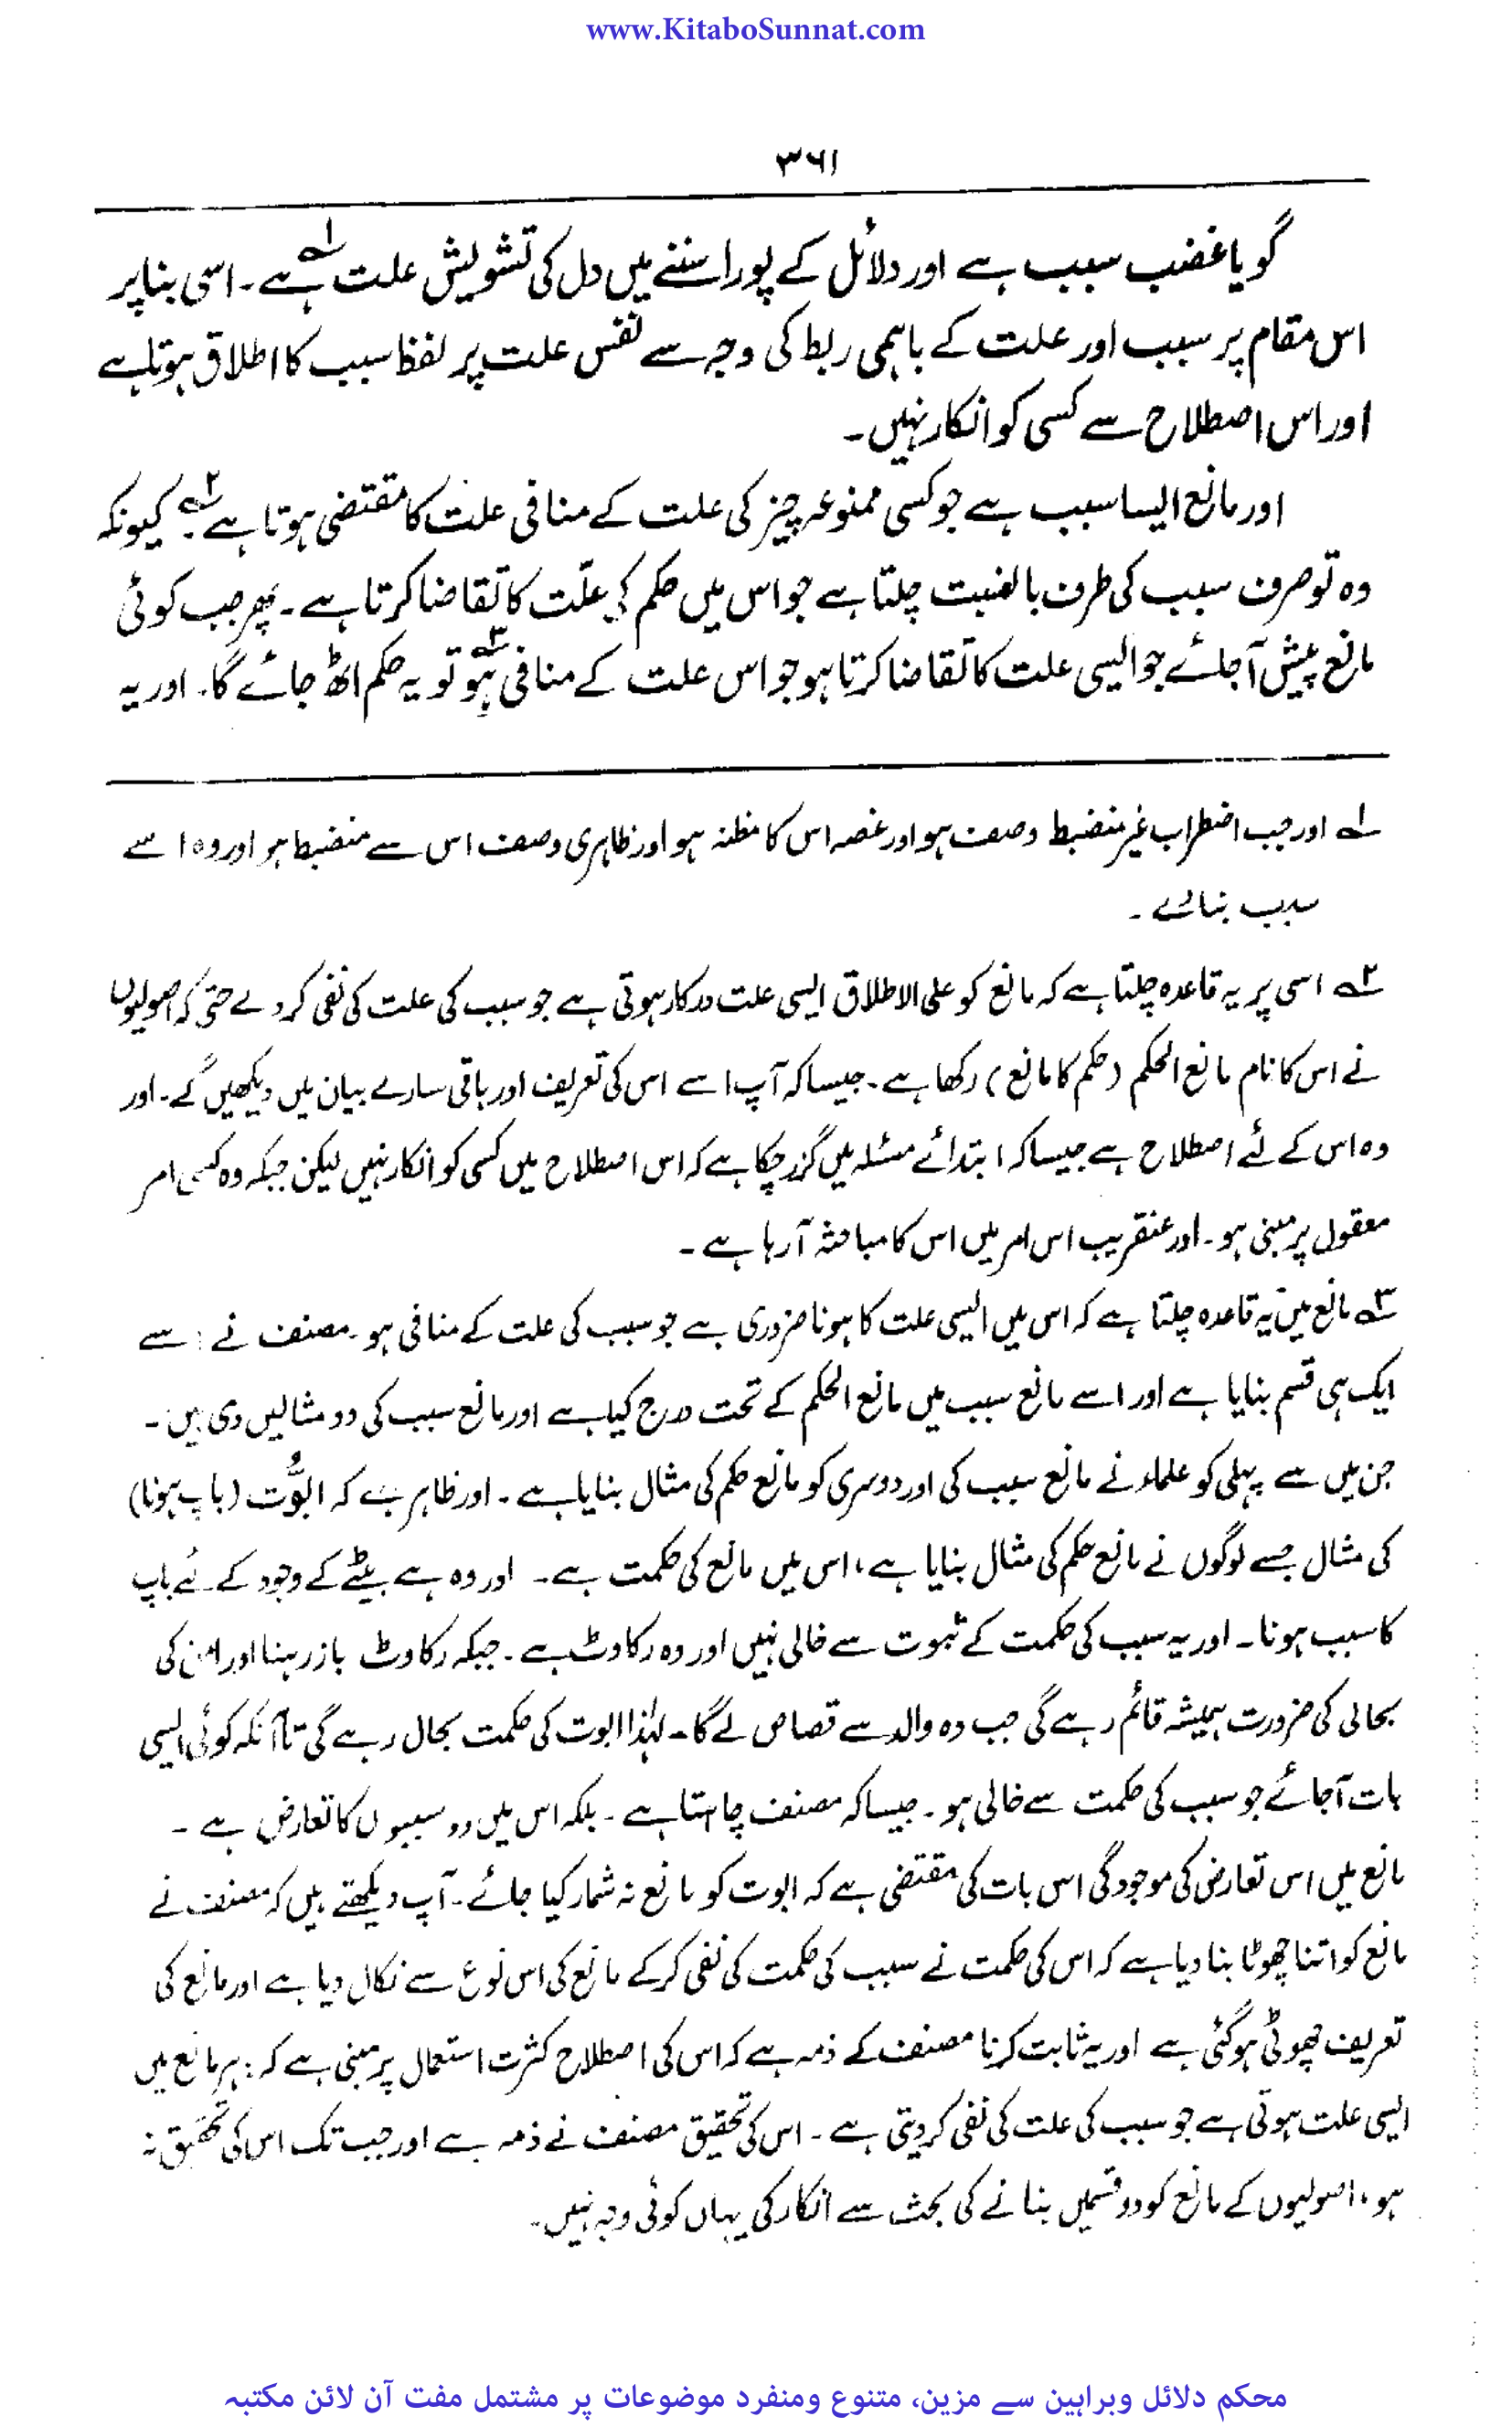 www.KitaboSunnat.com
۳۶۱
گویا غضب سبب ہے اور دلائل کے پورا سننے میں دل کی تشویش علت ہے۱؎۔ اسی بنا پر
اس مقام پر سبب اور علت کے باہمی ربط کی وجہ سے نفس علت پر لفظ سبب کا اطلاق ہوتا ہے
اور اس اصطلاح سے کسی کو انکار نہیں۔
اور مانع ایسا سبب ہے جو کسی ممنوعہ چیز کی علت کے منافی علت کا مقتضی ہوتا ہے۲؎۔ کیونکہ
وہ تو صرف سبب کی طرف بالغیبت چلتا ہے جو اس میں حکم کی علّت کا تقاضا کرتا ہے۔ پھر جب کوئی
مانع پیش آجائے جو ایسی علت کا تقاضا کرتا ہو جو اس علت کے منافی ہو۳؎ تو یہ حکم اٹھ جائے گا۔ اور یہ
۱؎ اور جب اضطراب غیر منضبط وصف ہو اور غصہ اس کا مظنہ ہو اور ظاہری وصف اس سے منضبط ہو اور وہ اسے
سبب بنالے۔
۲؎ اسی پر یہ قاعدہ چلتا ہے کہ مانع کو علی الاطلاق ایسی علت درکار ہوتی ہے جو سبب کی علت کی نفی کر دے حتی کہ اصولیوں
نے اس کا نام مانع الحکم (حکم کا مانع) رکھا ہے۔ جیسا کہ آپ اسے اس کی تعریف اور باقی سارے بیان میں دیکھیں گے۔ اور
وہ اس کے لئے اصطلاح ہے جیسا کہ ابتدائے مسئلہ میں گزر چکا ہے کہ اس اصطلاح میں کسی کو انکار نہیں لیکن جبکہ وہ کسی امر
معقول پر مبنی ہو۔ اور عنقریب اس امر میں اس کا مباحثہ آ رہا ہے۔
۳؎ مانع میں یہ قاعدہ چلتا ہے کہ اس میں ایسی علت کا ہونا ضروری ہے جو سبب کی علت کے منافی ہو۔ مصنف نے اسے
ایک ہی قسم بنایا ہے اور اسے مانع سبب میں مانع الحکم کے تحت درج کیا ہے اور مانع سبب کی دو مثالیں دی ہیں۔
جن میں سے پہلی کو علماء نے مانع سبب کی اور دوسری کو مانع حکم کی مثال بنایا ہے۔ اور ظاہر ہے کہ ابوُّت (باپ ہونا)
کی مثال جسے لوگوں نے مانع حکم کی مثال بنایا ہے، اس میں مانع کی حکمت ہے۔ اور وہ ہے بیٹے کے وجود کے لئے باپ
کا سبب ہونا۔ اور یہ سبب کی حکمت کے ثبوت سے خالی نہیں اور وہ رکاوٹ ہے۔ جبکہ رکاوٹ باز رہنا اور امن کی
بحالی کی ضرورت ہمیشہ قائم رہے گی جب وہ والد سے قصاص لے گا۔ لہٰذا ابوت کی حکمت بحال رہے گی تاآنکہ کوئی ایسی
بات آجائے جو سبب کی حکمت سے خالی ہو۔ جیسا کہ مصنف چاہتا ہے۔ بلکہ اس میں دو سببوں کا تعارض ہے۔
مانع میں اس تعارض کی موجودگی اس بات کی مقتضی ہے کہ ابوت کو مانع نہ شمار کیا جائے۔ آپ دیکھتے ہیں کہ مصنف نے
مانع کو اتنا چھوٹا بنا دیا ہے کہ اس کی حکمت نے سبب کی حکمت کی نفی کرکے مانع کی اس نوع سے نکال دیا ہے اور مانع کی
تعریف چھوٹی ہوگئی ہے اور یہ ثابت کرنا مصنف کے ذمہ ہے کہ اس کی اصطلاح کثرت استعمال پر مبنی ہے کہ: ہر مانع میں
ایسی علت ہوتی ہے جو سبب کی علت کی نفی کر دیتی ہے۔ اس کی تحقیق مصنف نے ذمہ ہے اور جب تک اس کی تحقیق نہ
ہو، اصولیوں کے مانع کو دو قسمیں بنانے کی بحث سے انکار کی یہاں کوئی وجہ نہیں۔
محکم دلائل وبراہین سے مزین، متنوع ومنفرد موضوعات پر مشتمل مفت آن لائن مکتبہ